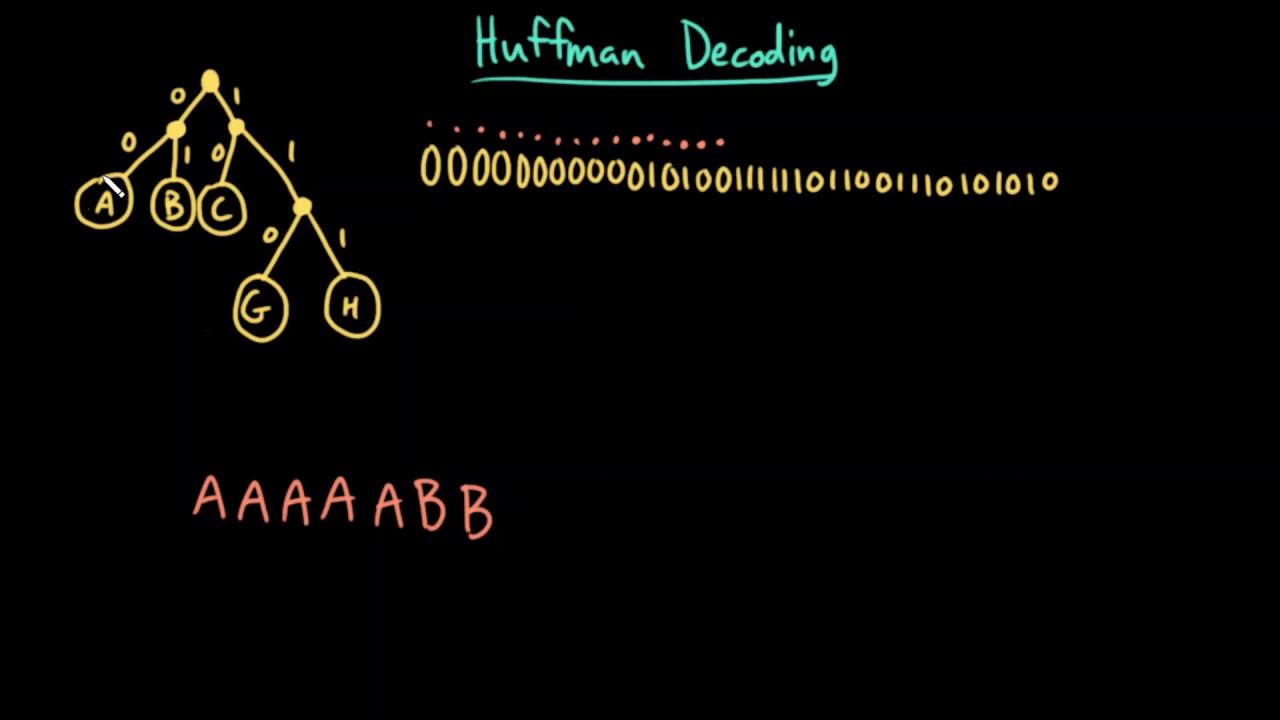 Huffman Decoding
0 1
0 1 0 1
A B C
0 1
G H
0000000000010100111111011001110101010
AAAAABB